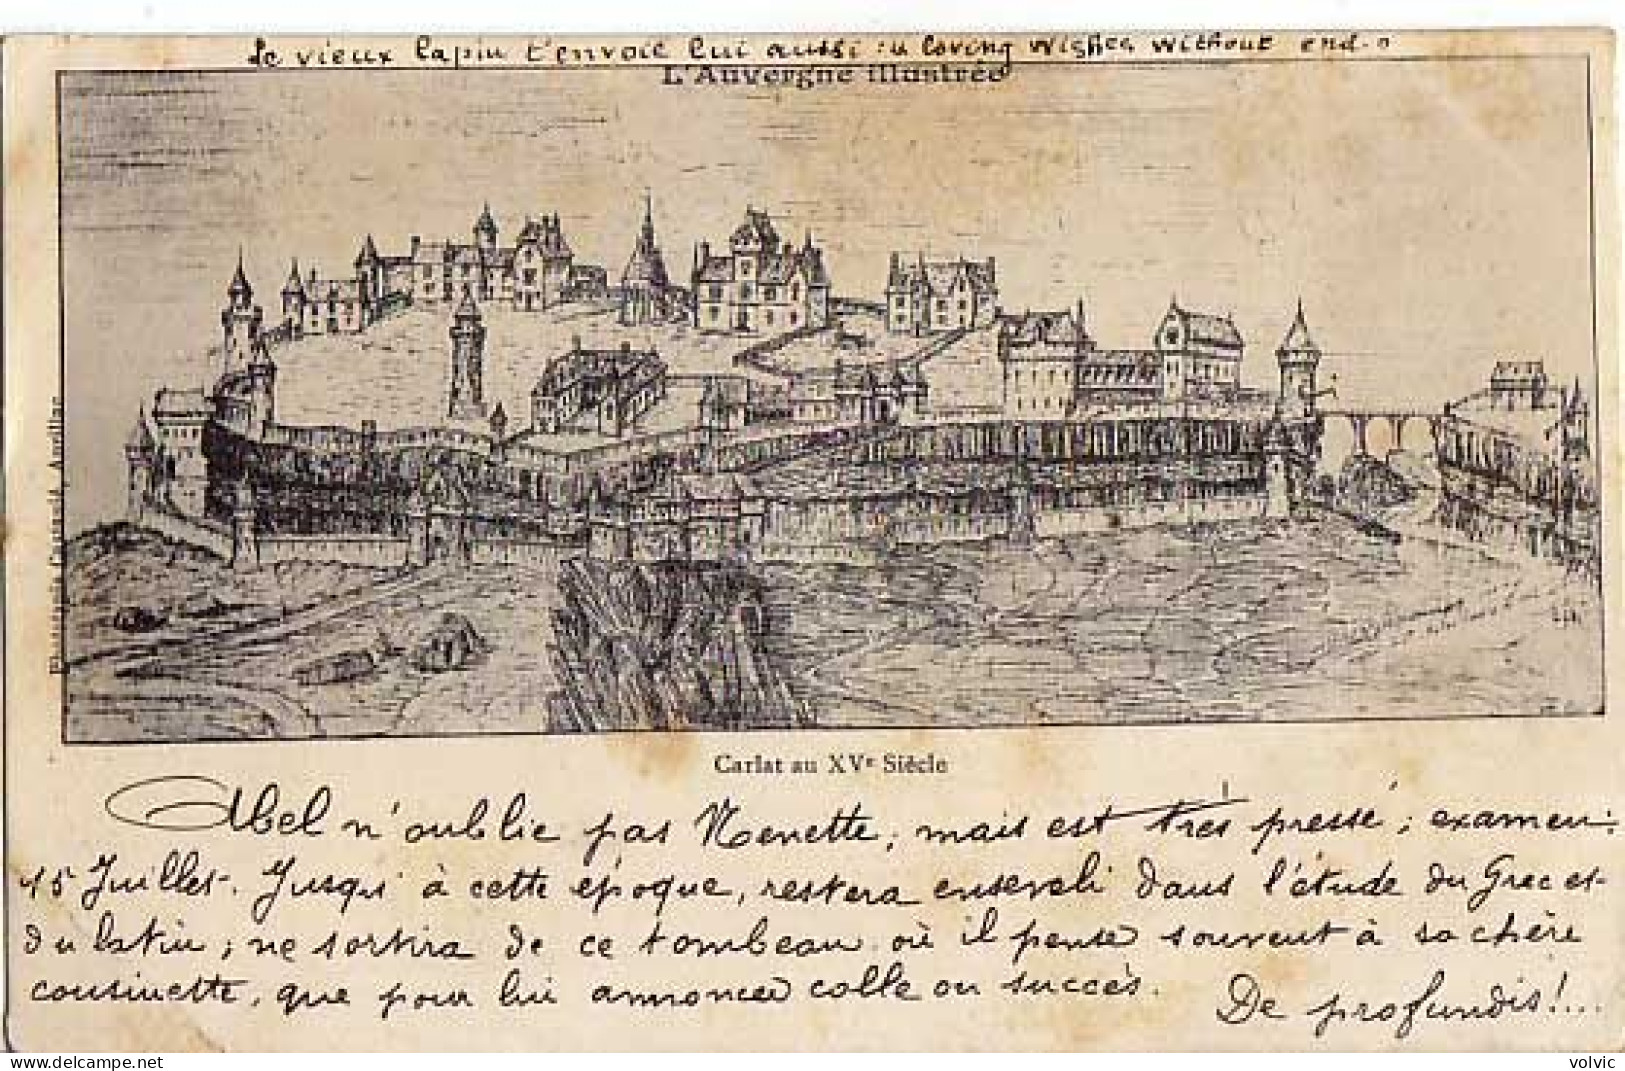 Le vieux lapin t'envoie lui aussi : a loving wishes without end.
L'Auvergne illustrée
Carlat au XVe Siècle
Abel n'oublie pas Nenette, mais est très pressé; examen:
15 Juillet. Jusqu'à cette époque, restera enseveli dans l'étude du Grec et
du latin; ne sortira de ce tombeau où il pense souvent à sa chère
cousinette, que pour lui annoncer colle ou succès.
De profundis!...
volvic